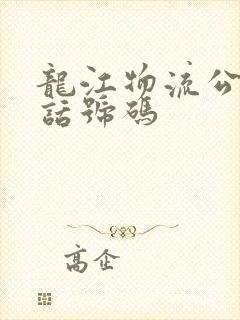 龍江物流公
話號碼
高企